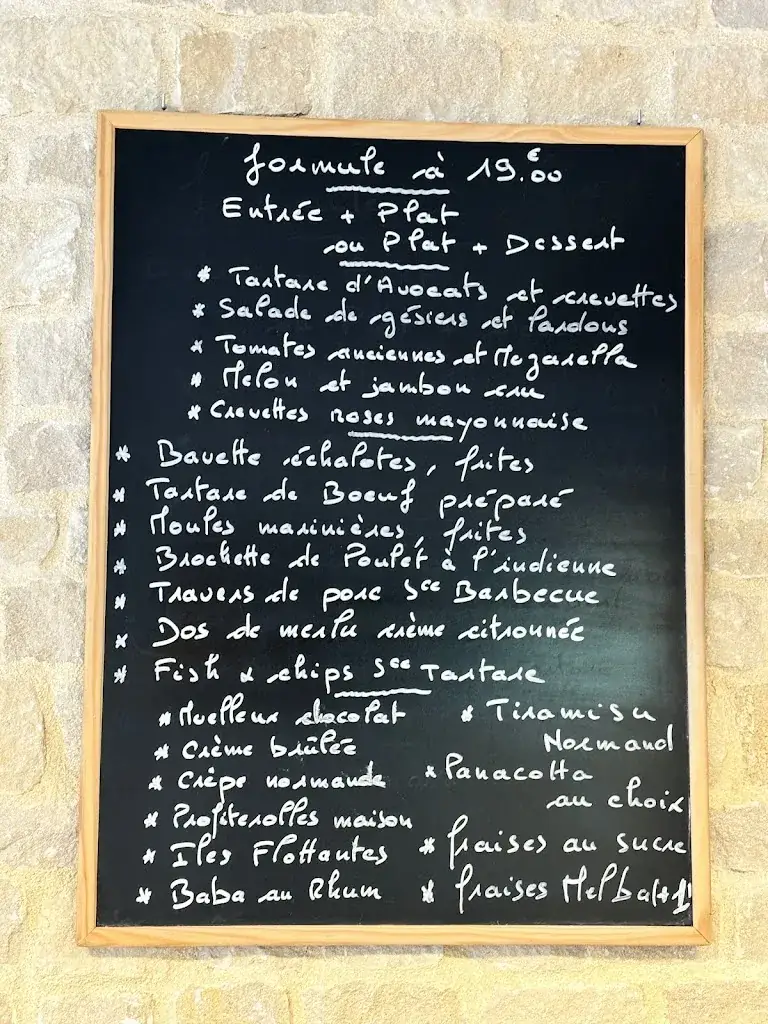 formule à 19.€00
Entrée + Plat
ou Plat + Dessert
* Tartare d'Avocats et crevettes
* Salade de gésiers et lardons
* Tomates anciennes et Mozarella
* Melon et jambon cru
* Crevettes roses mayonnaise
* Bavette échalotes, frites
* Tartare de Boeuf préparé
* Moules marinières, frites
* Brochette de Poulet à l'indienne
* Travers de porc Sce Barbecue
* Dos de merlu crème citronnée
* Fish & chips Sce Tartare
* Moelleux chocolat
* Crème brûlée
* Crêpe normande
* Profiterolles maison
* Iles Flottantes
* Baba au Rhum
* Tiramisu
Normand
* Panacotta
au choix
* fraises au sucre
* fraises Melba(+1